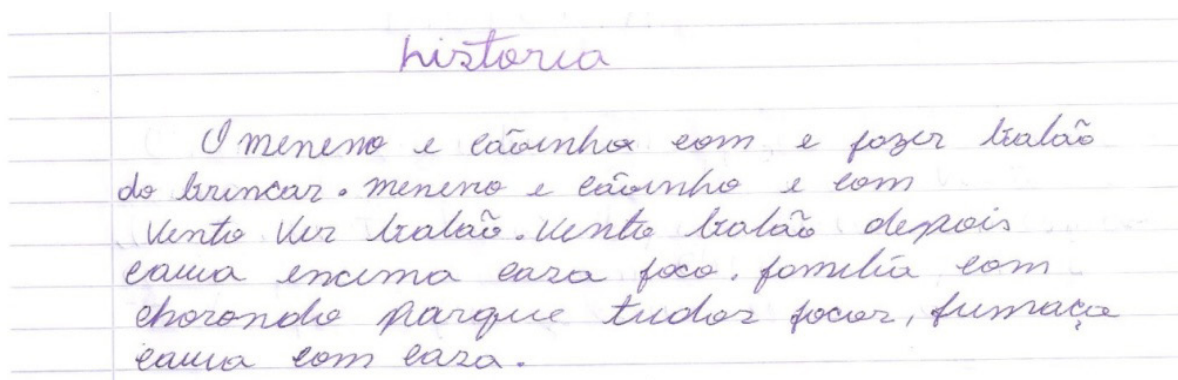 historia
O meneno e cãoinho com e fazer balão
do brincar. meneno e cãoinho e com
vento ver balão. vento balão depois
cauia encima caza foco. familia com
chorondo parque tudor focor, fumaça
cauia com caza.